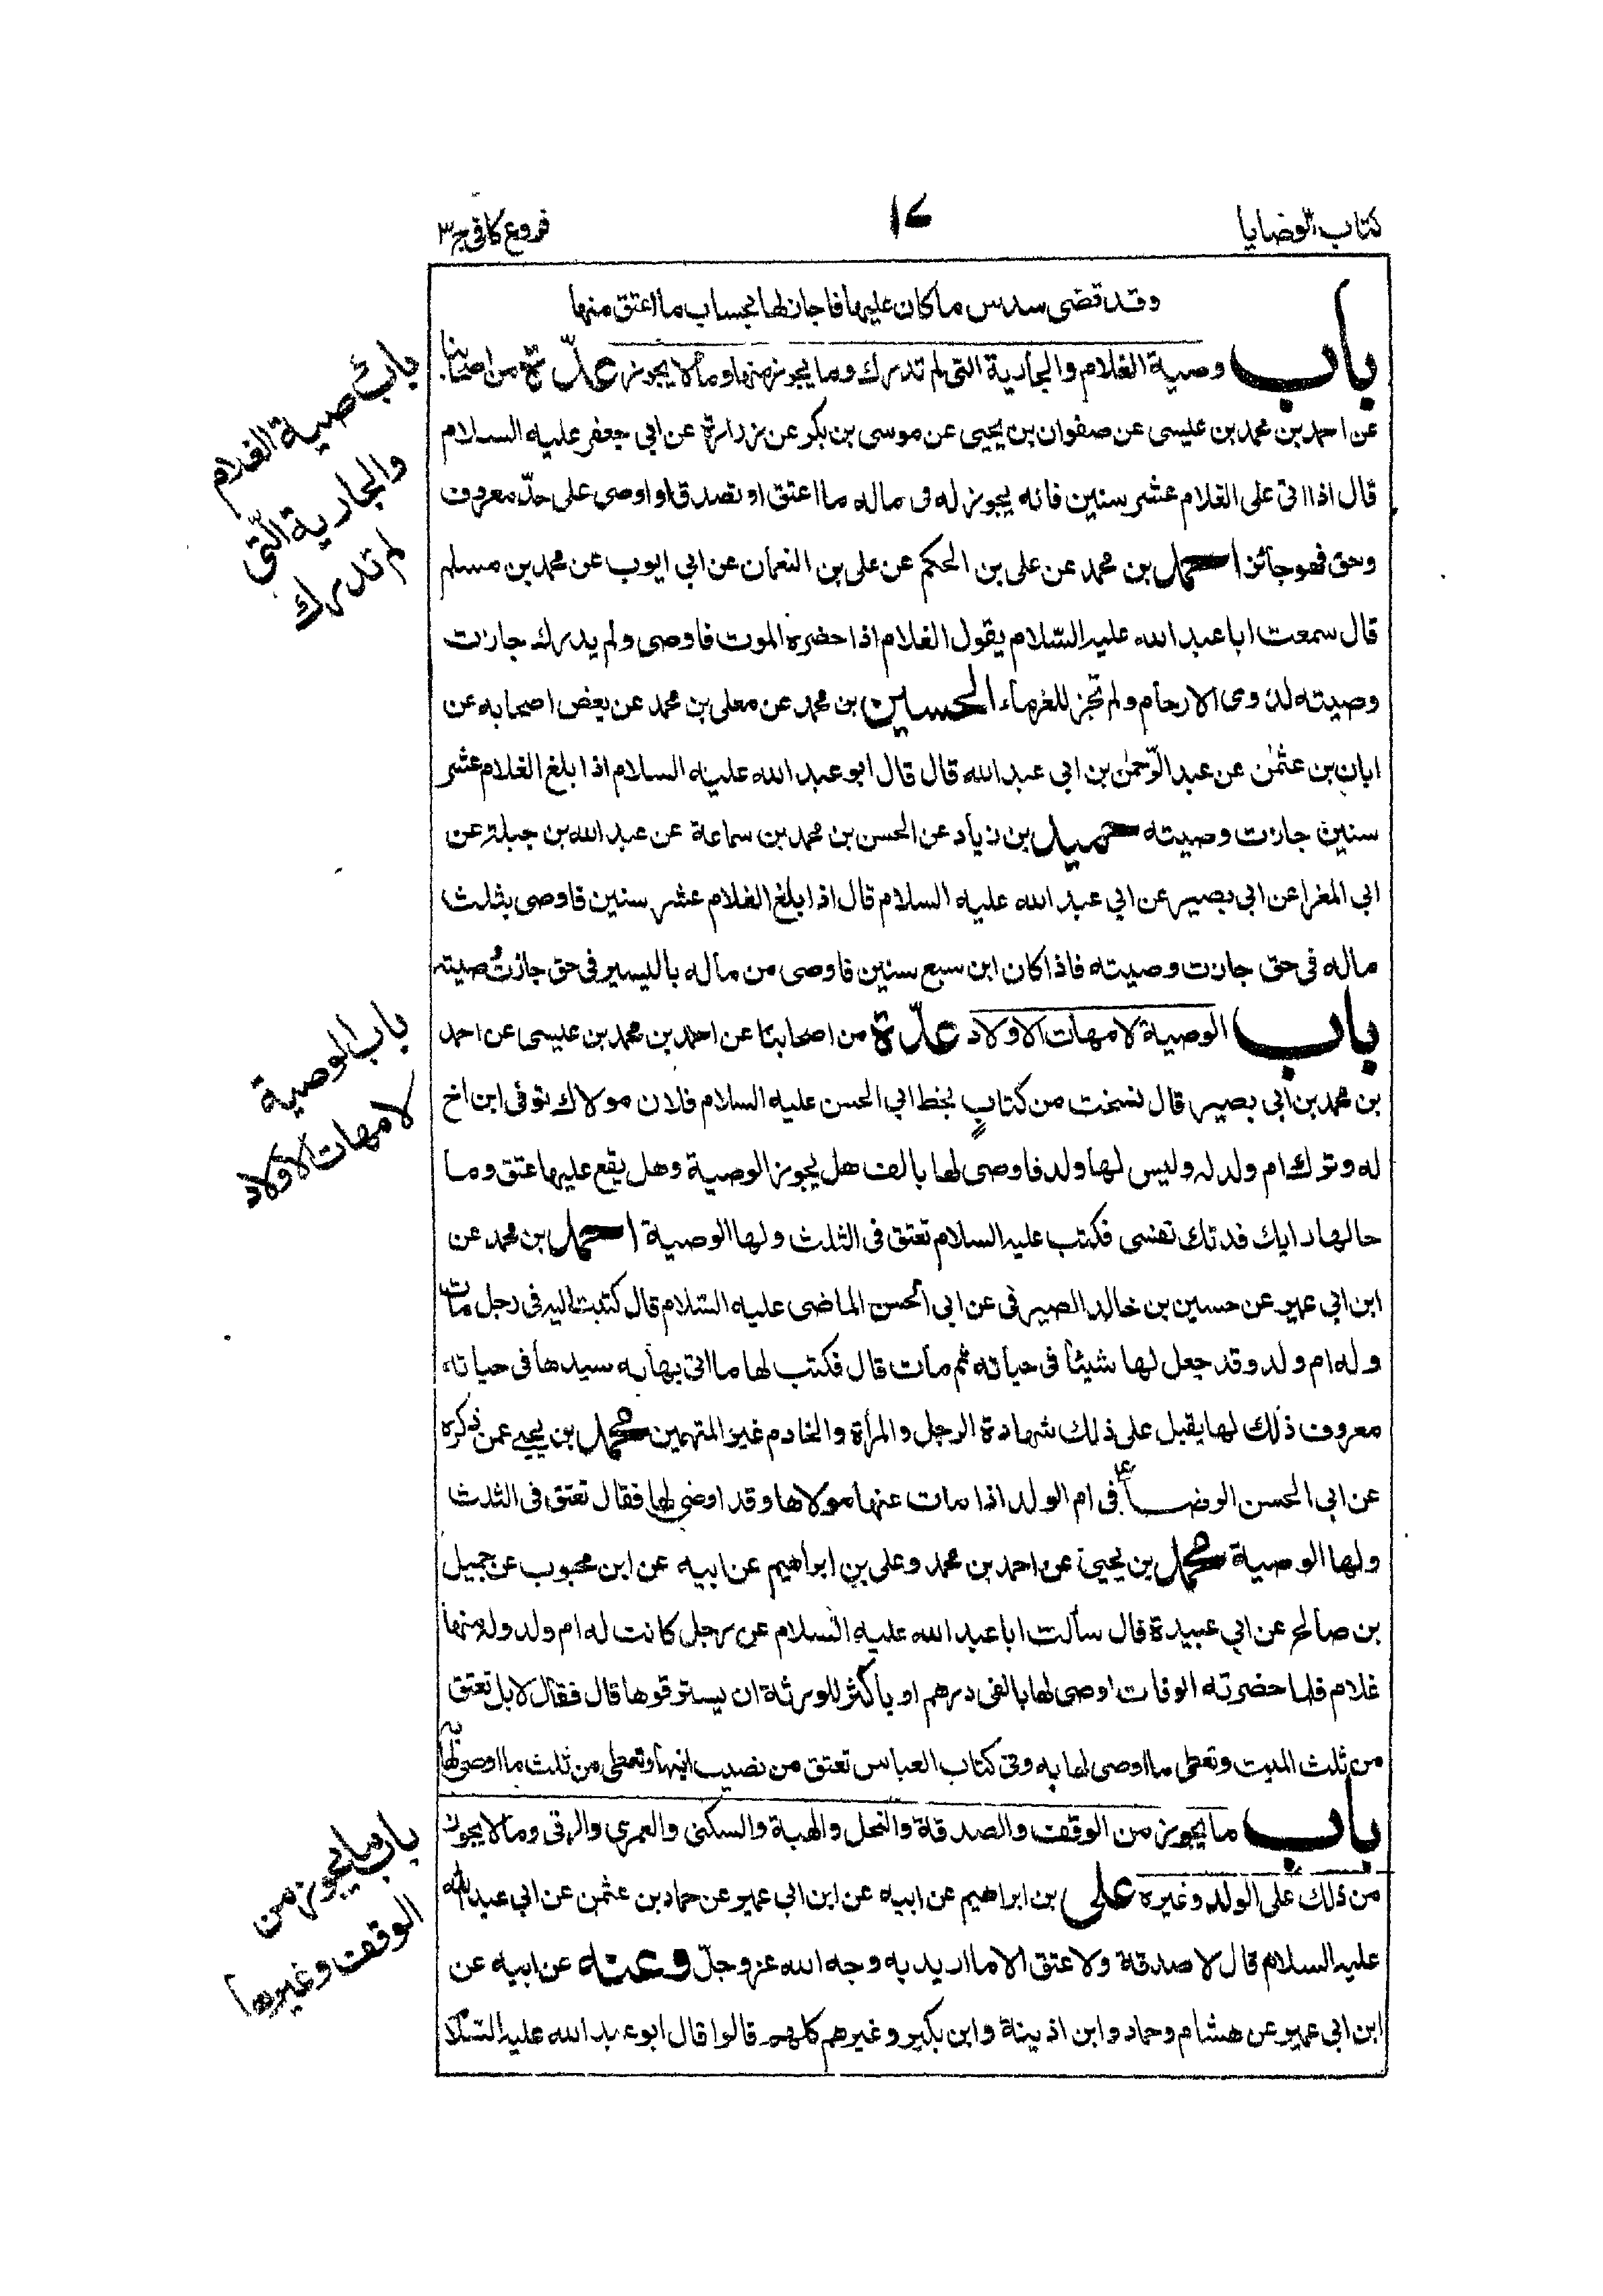 كتاب الوصايا
١٤
فروع كافي ج٣
وقد قضى سدس ما كان عليها فاجاز لها بحساب ما اعتق منها
باب وصية الغلام والجارية التي لم تدرك وما يجوز منها وما لا يجوز عدّة من اصحابنا
عن احمد بن محمد بن عليسى عن صفوان بن يحيى عن موسى بن بكر عن زرارة عن ابي جعفر عليه السلام
قال اذا اتى على الغلام عشر سنين فانه يجوز له في ماله ما اعتق او تصدق او اوصى على حدّ معروف
وحق فهو جائز احمد بن محمد عن على بن الحكم عن على بن النعمان عن ابي ايوب عن محمد بن مسلم
قال سمعت ابا عبد الله عليه السّلام يقول الغلام اذا حضره الموت فاوصى ولم يدرك جازت
وصيته لذوى الارحام ولم تجز للغرماء الحسين بن محمد عن معلى بن محمد عن بعض اصحابه عن
ابان بن عثمٰن عن عبد الرّحمٰن بن ابي عبد الله قال قال ابو عبد الله عليه السلام اذا بلغ الغلام عشر
سنين جازت وصيته حميد بن زياد عن الحسن بن محمد بن سماعة عن عبد الله بن جبلة عن
ابي المغرا عن ابي بصير عن ابي عبد الله عليه السلام قال اذا بلغ الغلام عشر سنين فاوصى بثلث
ماله في حق جازت وصيته فاذا كان ابن سبع سنين فاوصى من ماله باليسير في حق جازت وصيته
باب الوصية لامهات الاولاد عدّة من اصحابنا عن احمد بن محمد بن عيسى عن احمد
بن محمد بن ابي بصير قال نسخت من كتابٍ بخط ابي الحسن عليه السلام فلان مولاك توفى ابن اخ
له وترك ام ولد له وليس لها ولد فاوصى لها بالف هل يجوز الوصية وهل يقع عليها عتق وما
حالها رايك فدتك نفسى فكتب عليه السلام تعتق في الثلث ولها الوصية احمد بن محمد عن
ابن ابي عمير عن حسين بن خالد الصيرفى عن ابي الحسن الماضى عليه السّلام قال كتبت اليه في رجل مات
وله ام ولد وقد جعل لها شيئا في حياته ثم مات قال فكتب لها ما اتى بها به سيدها في حياته
معروف ذلك لها يقبل على ذلك شهادة الرجل والمرأة والخادم غير المتهمين محمد بن يحيى عمن ذكره
عن ابي الحسن الرضا ع في ام الولد اذا مات عنها مولاها وقد اوصى لها فقال تعتق في الثلث
ولها الوصية محمد بن يحيى عن احمد بن محمد وعلى بن ابراهيم عن ابيه عن ابن محبوب عن جميل
بن صالح عن ابي عبيدة قال سألت ابا عبد الله عليه السلام عن رجل كانت له ام ولد وله منها
غلام فلما حضرته الوفات اوصى لها بالفى درهم او باكثر للورثة ان يسترقوها قال فقال لا بل تعتق
من ثلث الميت وتعطى ما اوصى لها به وفى كتاب العباس تعتق من نصيب ابنها وتعطى من ثلث ما اوصى لها به
باب ما يجوز من الوقف والصدقة والنحل والهبة والسكنى والعمرى والرقبى وما لا يجوز
من ذلك على الولد وغيره على بن ابراهيم عن ابيه عن ابن ابي عمير عن حماد بن عثمن عن ابي عبد الله
عليه السلام قال لا صدقة ولا عتق الا ما اريد به وجه الله عز وجلّ وعنه عن ابيه عن
ابن ابي عمير عن هشام وحماد وابن اذينة وابن بكير وغيرهم كلهم قالوا قال ابو عبد الله عليه السّلا
باب وصية الغلام
والجارية الّتي
لم تدرك
باب الوصية
لامهات الاولاد
باب ما يجوز من
الوقف وغيرها